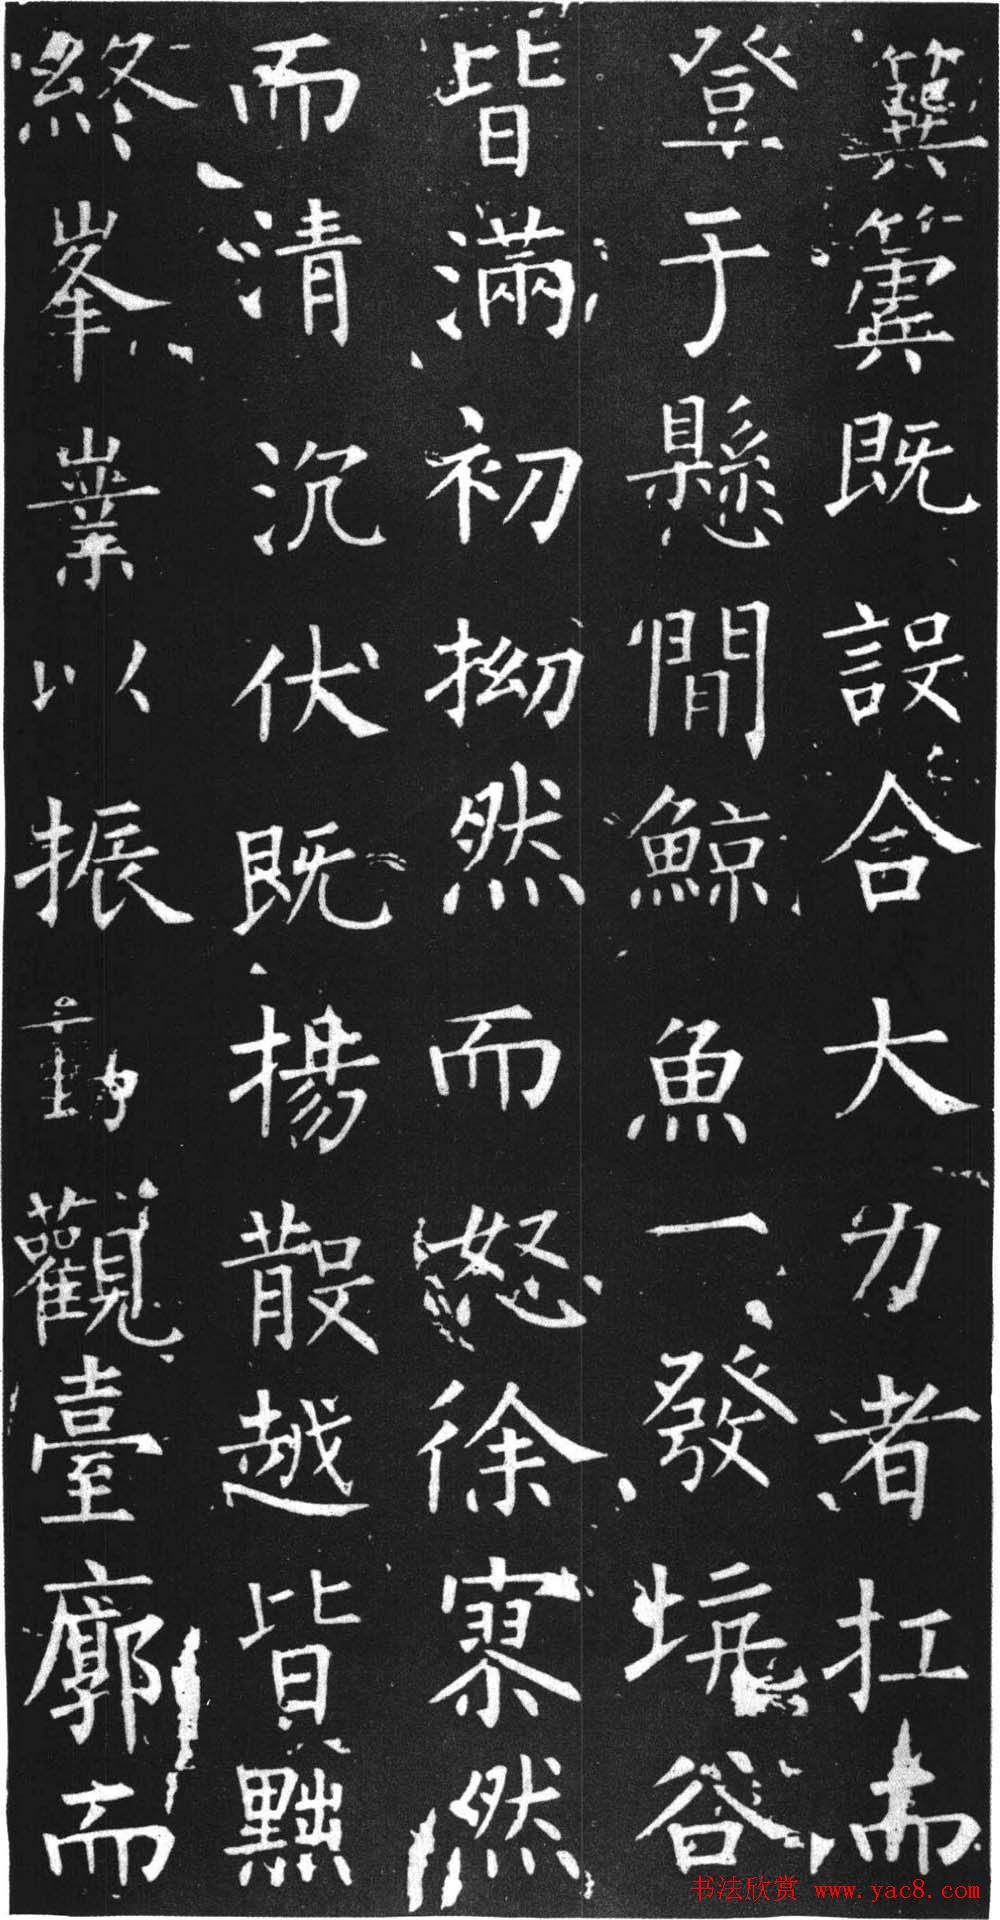 簨簴既設合大力者扛而
登于懸間鯨魚一發坑谷
皆滿初拗然而怒徐寥然
而清沉伏既揚散越皆黜
終峯業以振動觀臺廓而
书法欣赏 www.yac8.com